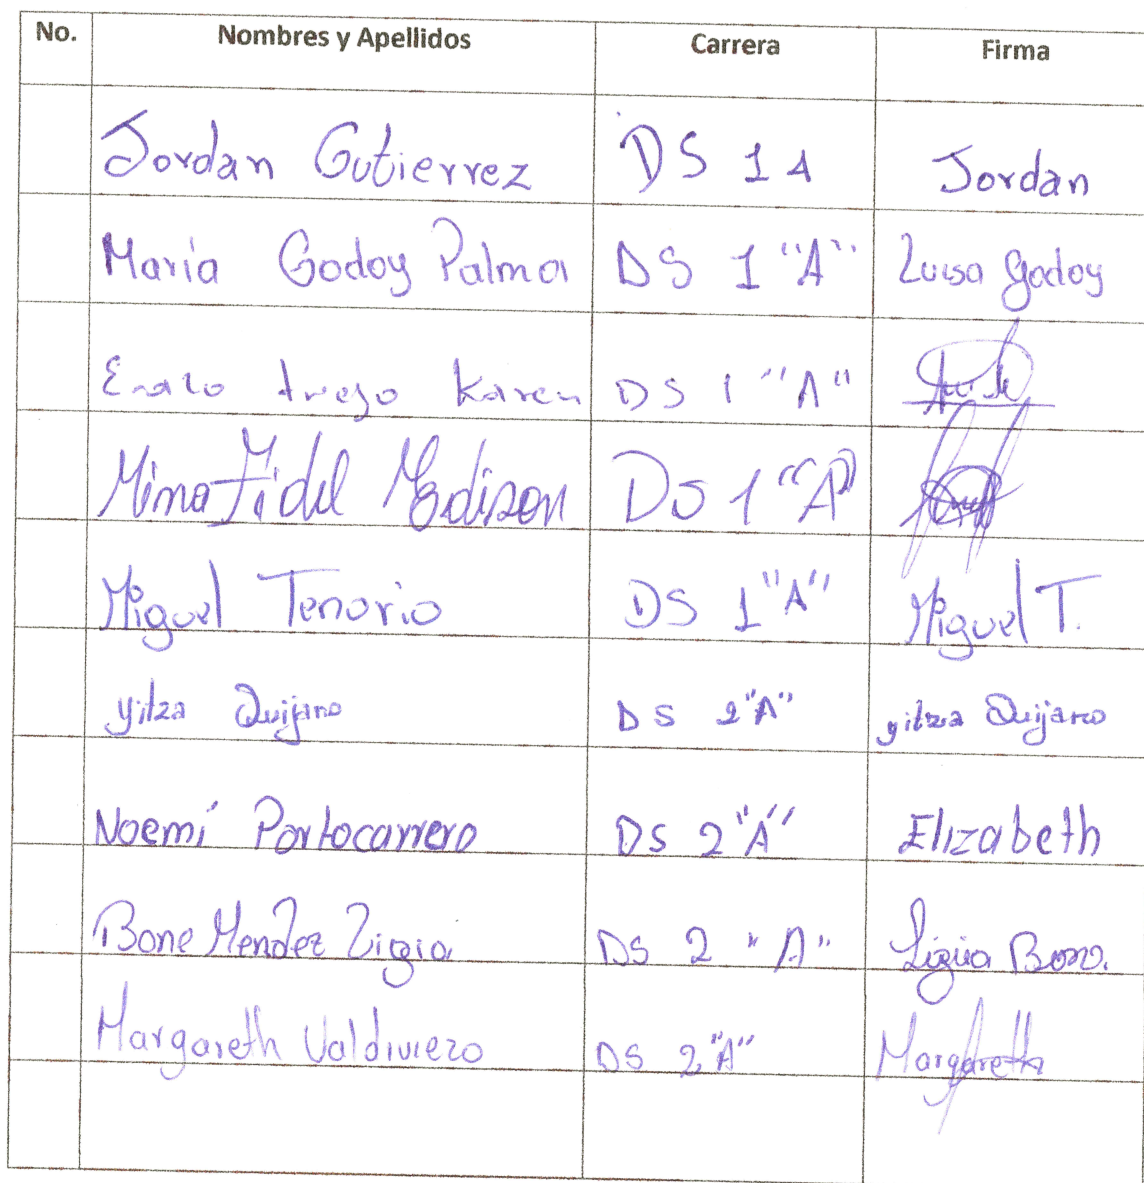 No. Nombres y Apellidos Carrera Firma
Jordan Gutierrez DS 1 A Jordan
Maria Godoy Palma DS 1 "A" Luisa Godoy
Karen DS 1 "A"
Mina Fidel Edison DS 1 "A"
Miguel Tenorio DS 1 "A" Miguel T.
yilza Quijano DS 2 "A" yilza Quijano
Noemí Portocarrero DS 2 "A" Elizabeth
Bone Mendez Ligia DS 2 "A" Ligia Bone.
Margareth Valdiviezo DS 2 "A" Margareth